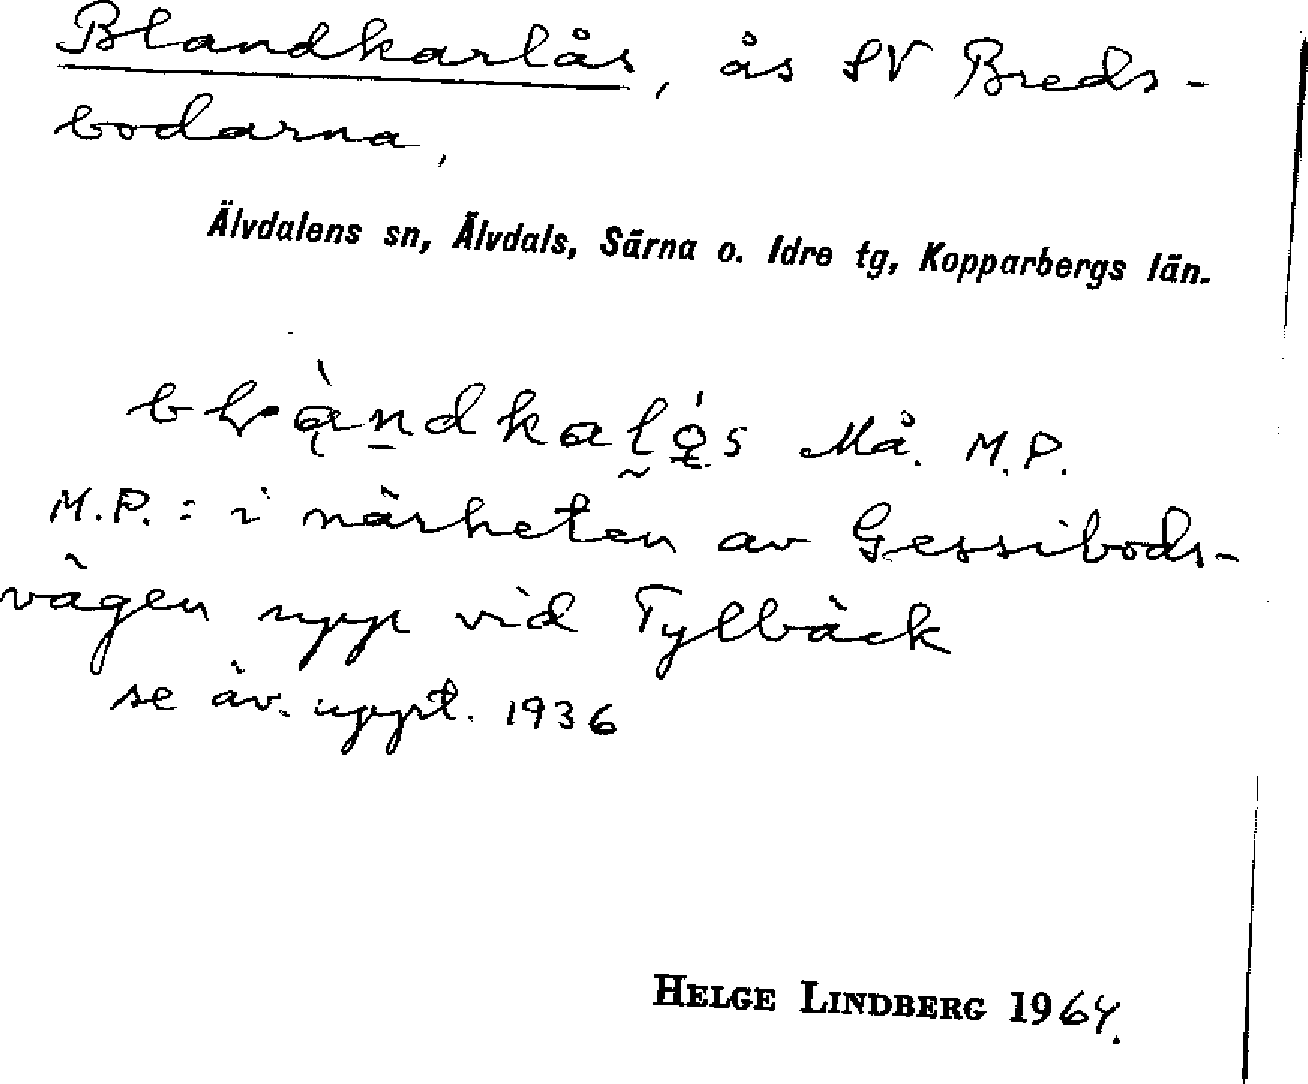 Blandkarlås, ås SV Breds-
bodarna,
Älvdalens sn, Älvdals, Särna o. Idre tg, Kopparbergs län.
Må. M.P.
M.P. : i närheten av Gessibods-
vägen upp vid Tylbäck
se äv. uppt. 1936
HELGE LINDBERG 1964.